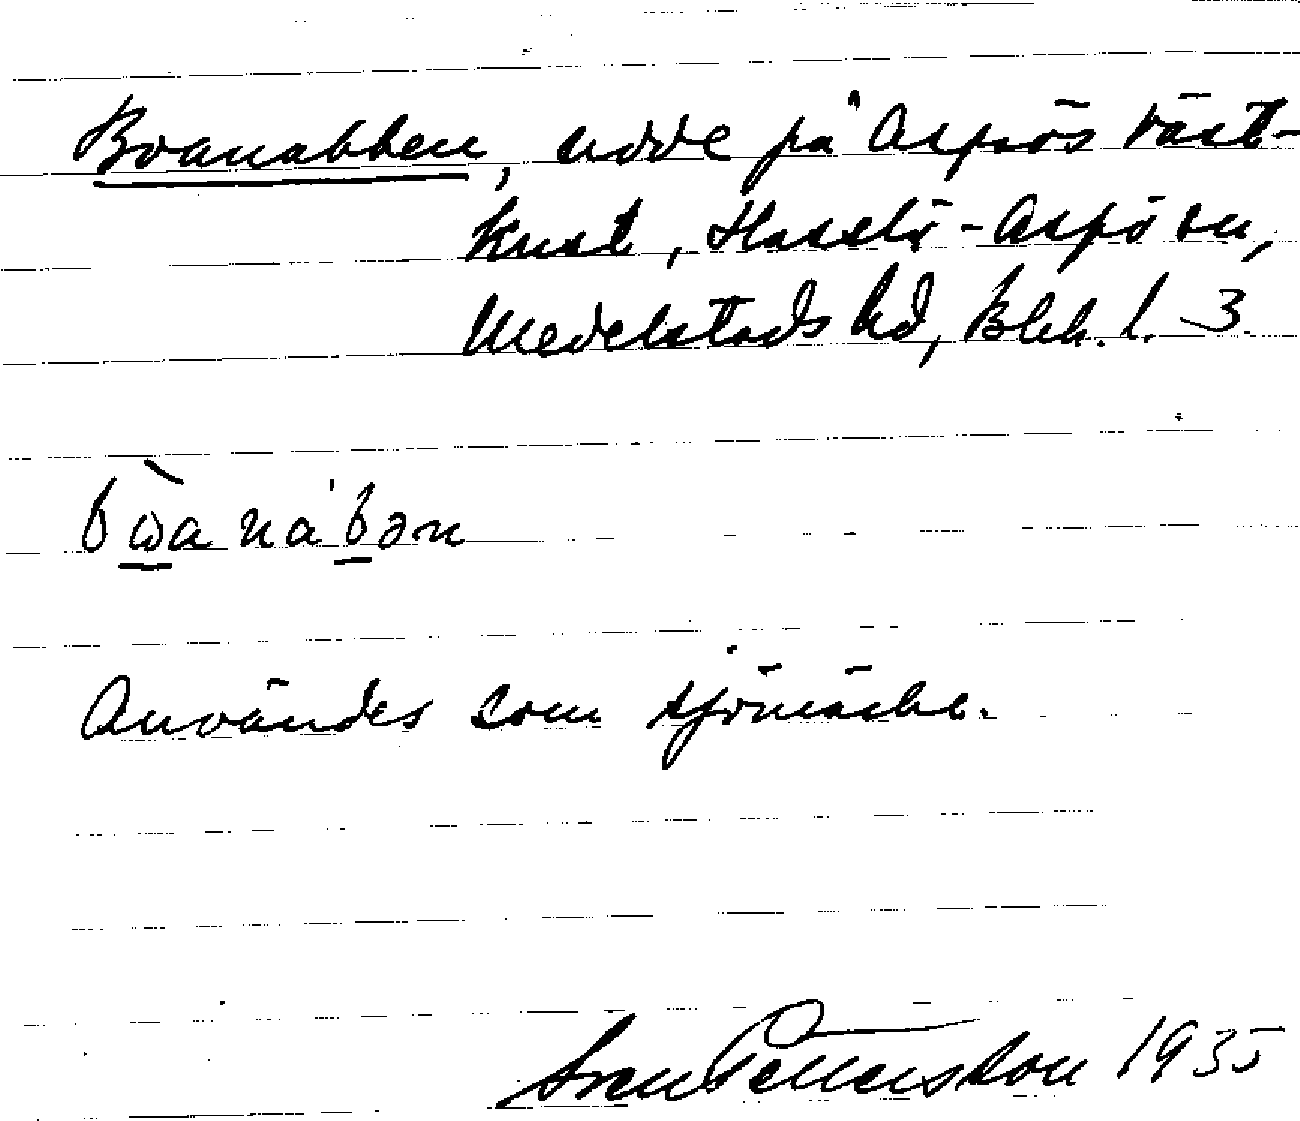 Boanabben, udde på Aspös väst-
kust, Hasslö-Aspö sn,
Medelstads hd, Blek. l. 3
bωanabən
Användes som sjömärke.
Sven Pettersson 1935